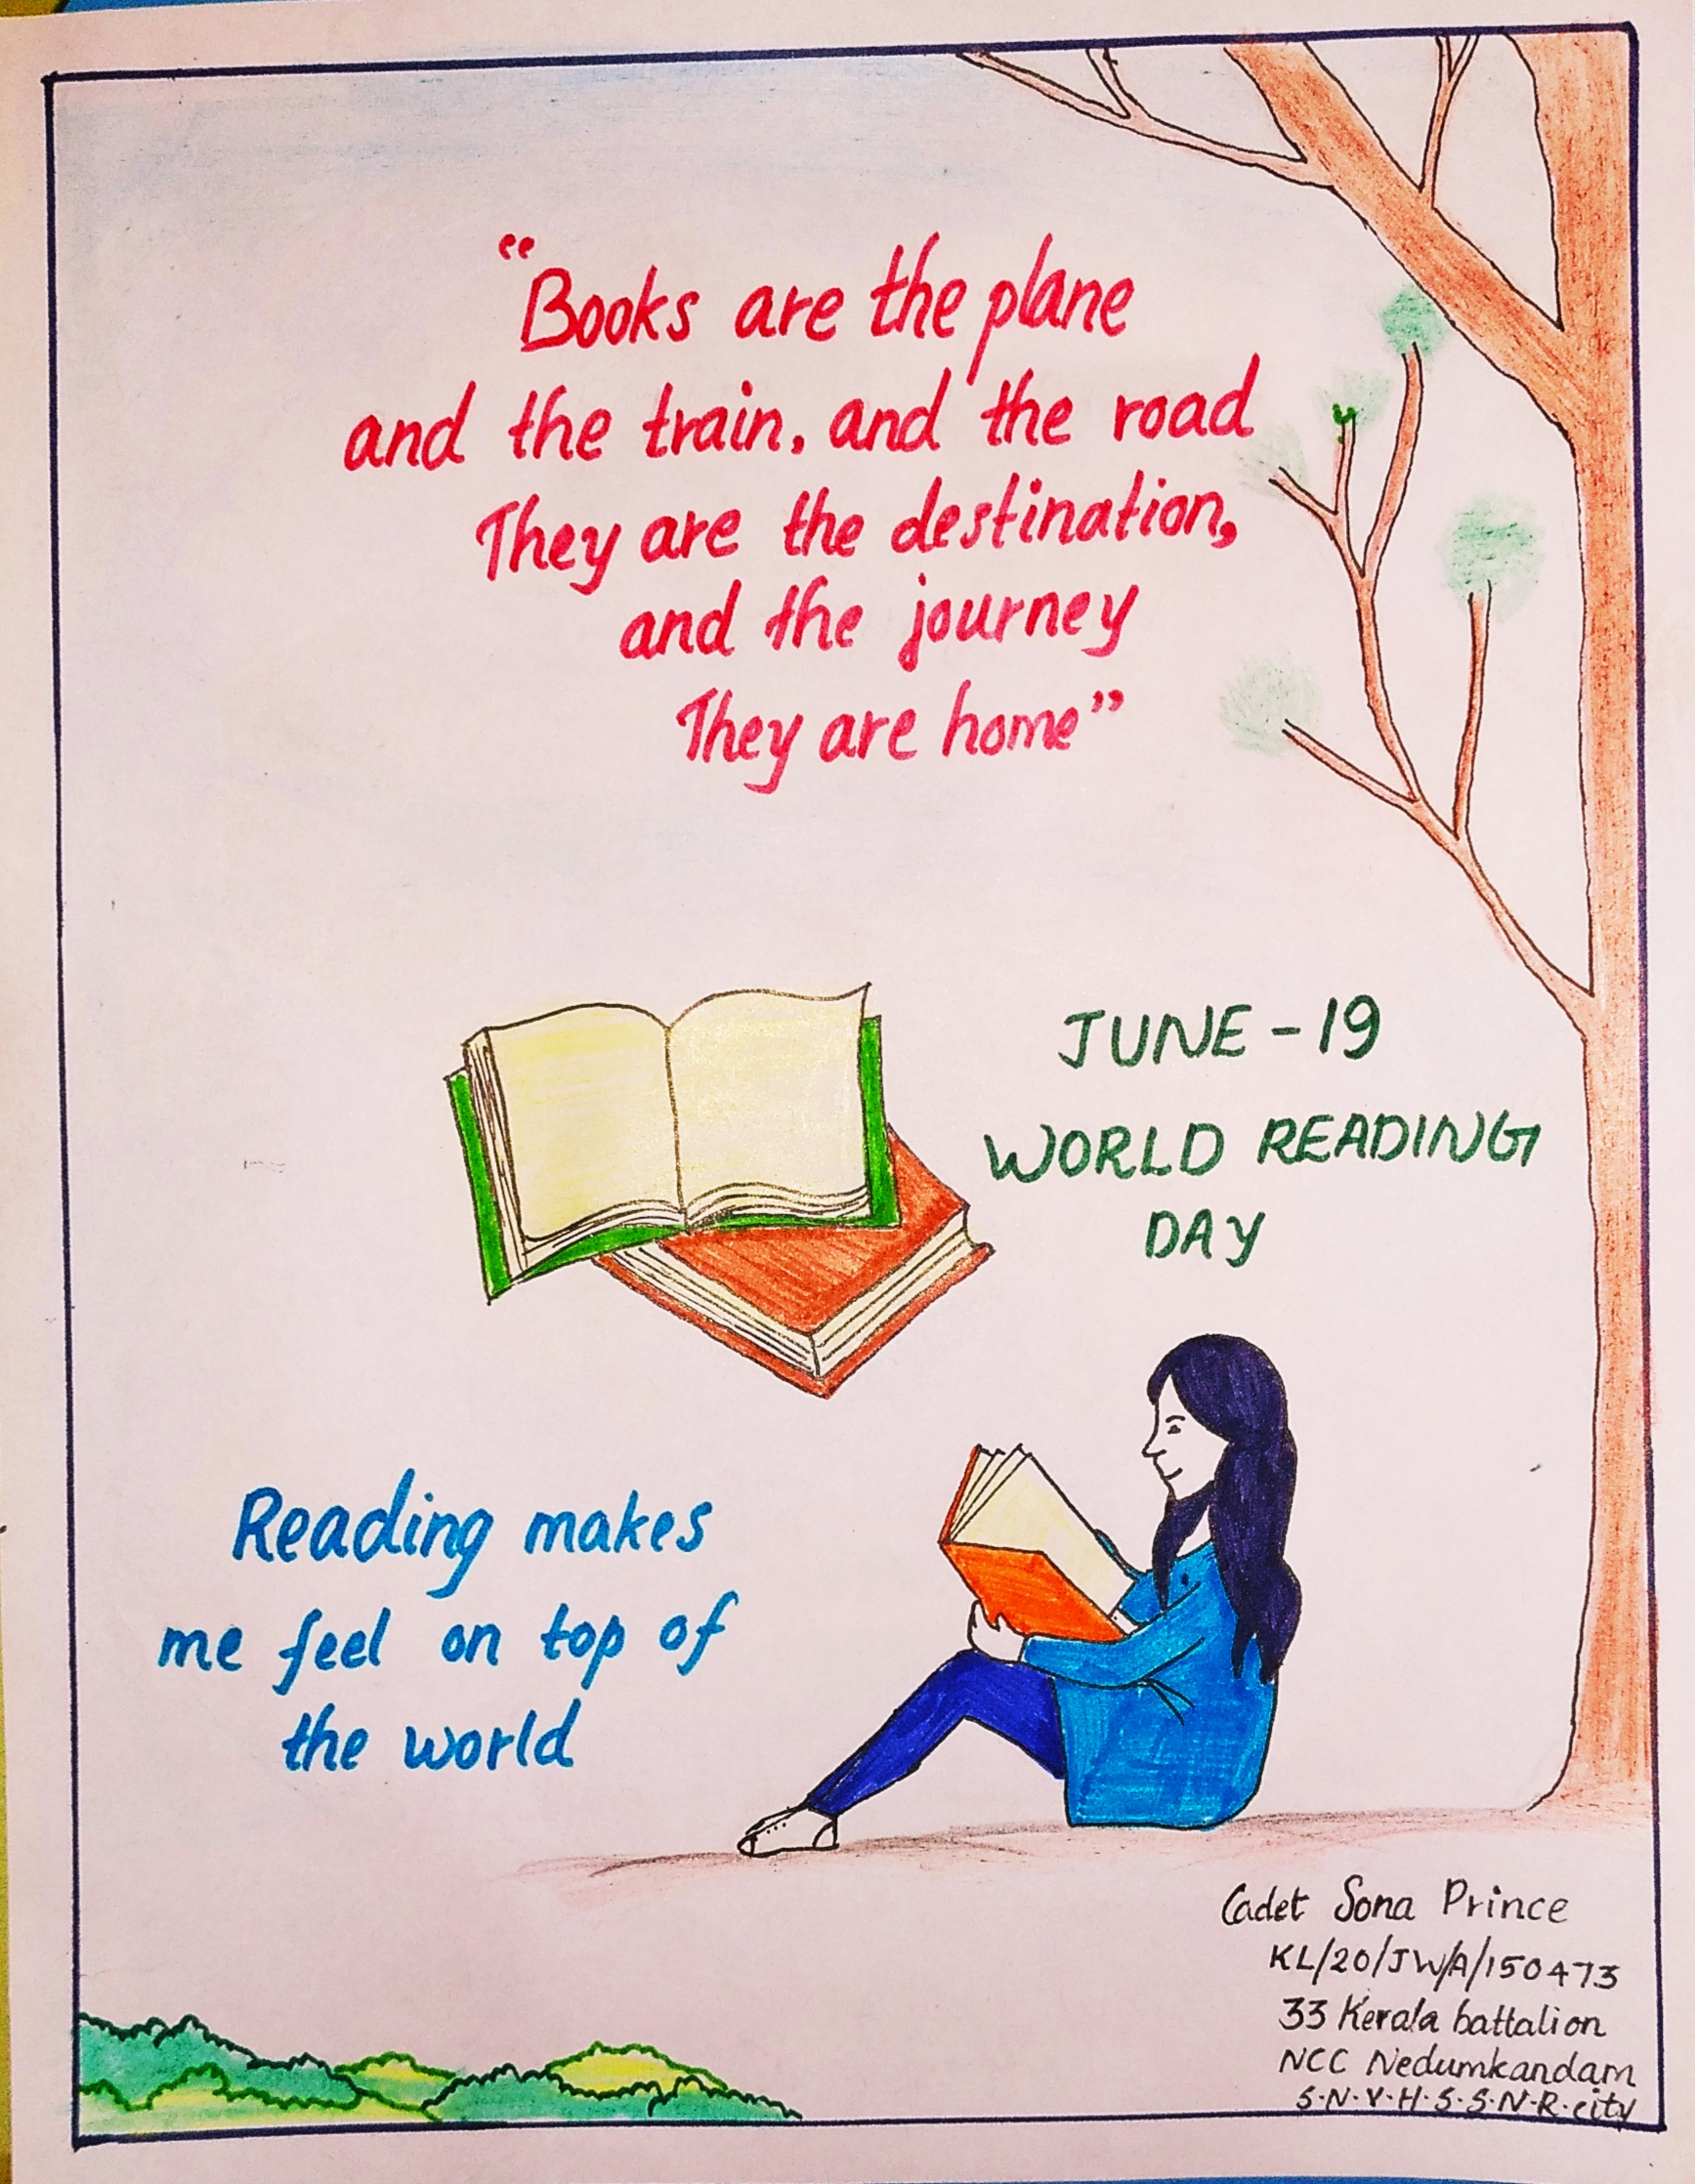 “Books are the plane
and the train. and the road
They are the destination,
and the journey
They are home”
JUNE - 19
WORLD READING
DAY
Reading makes
me feel on top of
the world
Cadet Sona Prince
KL/20/JW/A/150473
33 Kerala battalion
NCC Nedumkandam
S.N.V.H.S.S.N.R.city